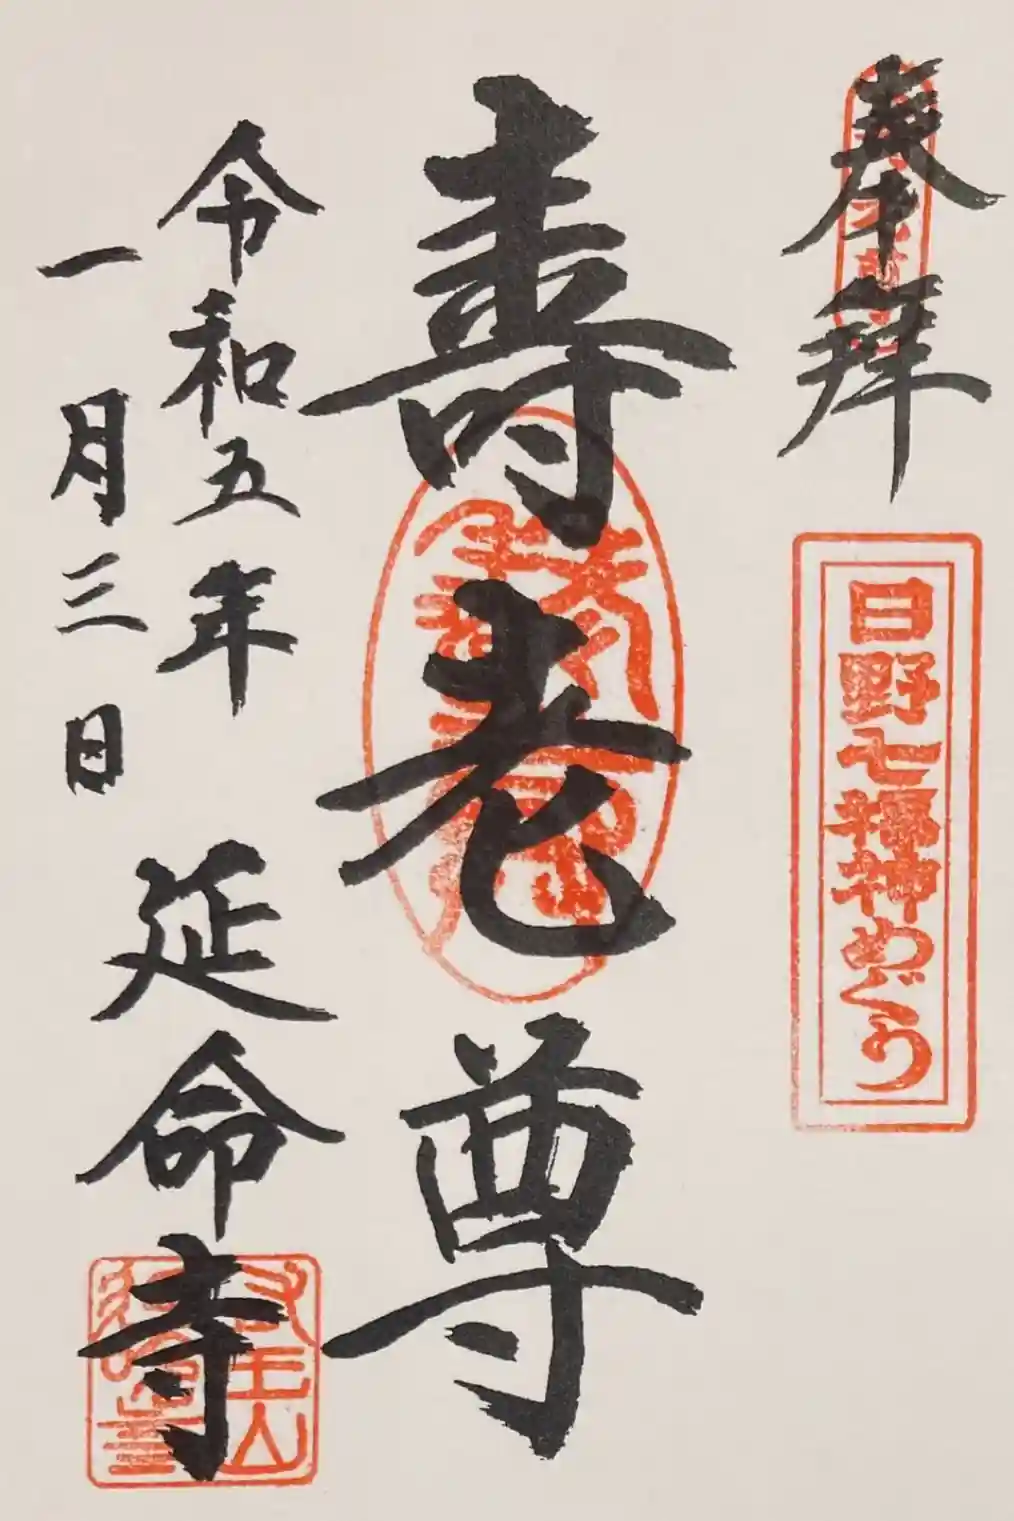 奉拝
日野七福神めぐり
寿老尊
令和五年
一月三日
延命寺